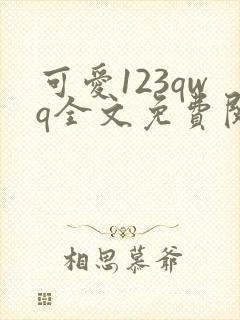 可愛123qw
q全文免費閱
相思慕爷